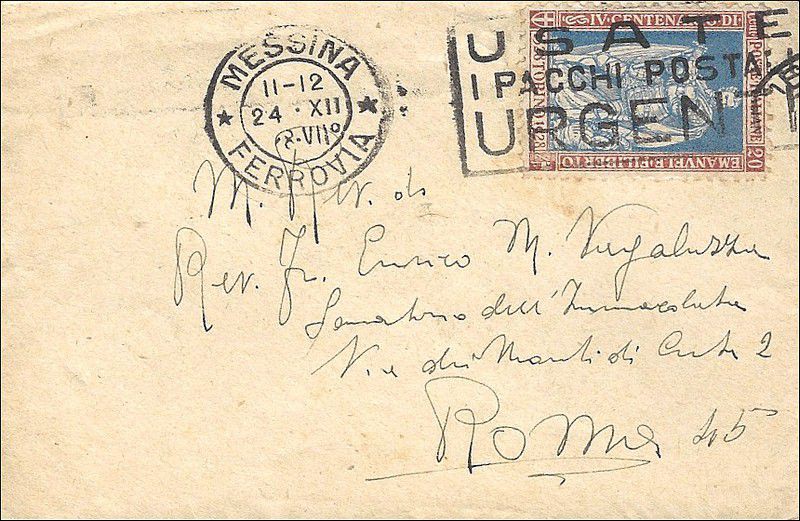 MESSINA
11-12
24 · XII
8-VII°
FERROVIA
USATE
I PACCHI POSTA
URGEN
IV·CENTENARIO·DI
EMANVEL·FILIBERTO
TORINO·1928
POSTE ITALIANE
20
M. Rev. do
Rev. Fr. Enrico M.
dell'Immacolata
Via dei Monti di Creta 2
Roma 45